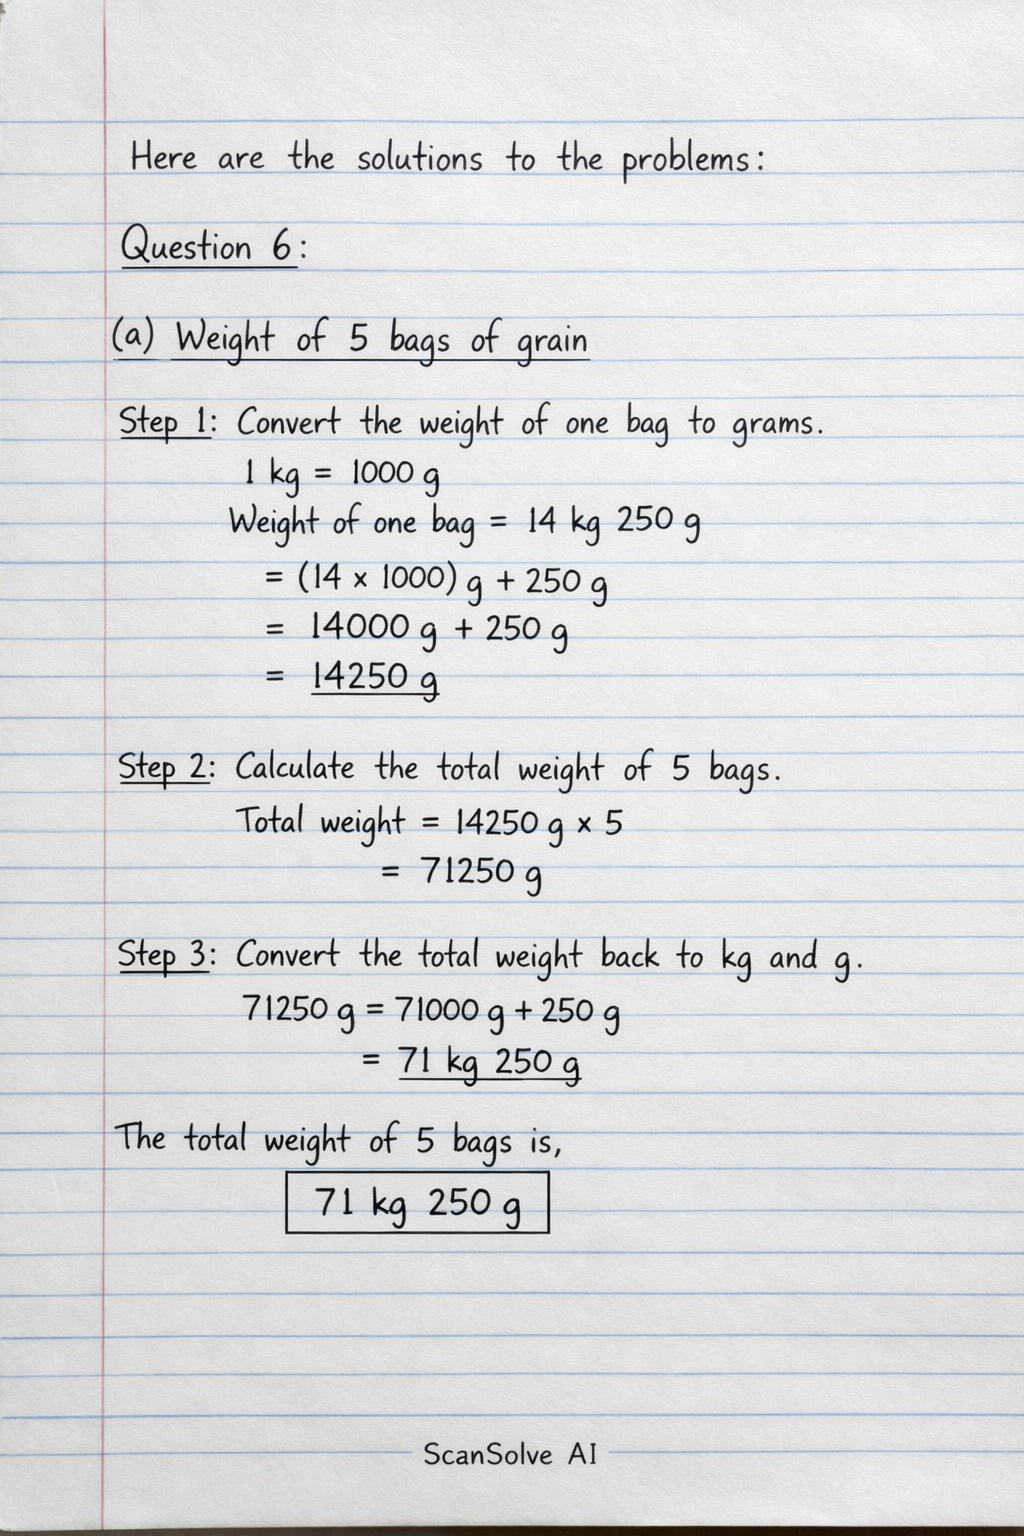 Here are the solutions to the problems:
Question 6:
(a) Weight of 5 bags of grain
Step 1: Convert the weight of one bag to grams.
1 kg = 1000 g
Weight of one bag = 14 kg 250 g
= (14 x 1000) g + 250 g
= 14000 g + 250 g
= 14250 g
Step 2: Calculate the total weight of 5 bags.
Total weight = 14250 g x 5
= 71250 g
Step 3: Convert the total weight back to kg and g.
71250 g = 71000 g + 250 g
= 71 kg 250 g
The total weight of 5 bags is,
71 kg 250 g
ScanSolve AI